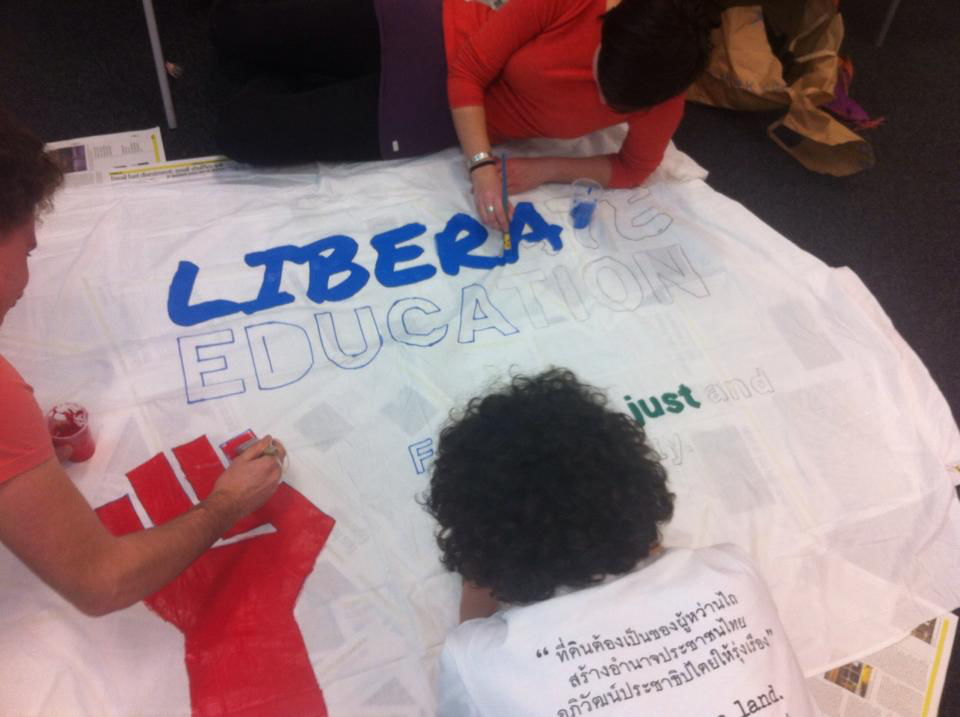 LIBERATE
EDUCATION
just and
F
y.
“ ที่ดินต้องเป็นของผู้หว่านไถ
สร้างอำนาจประชาชนไทย
อภิวัฒน์ประชาธิปไตยให้รุ่งเรือง”
land.